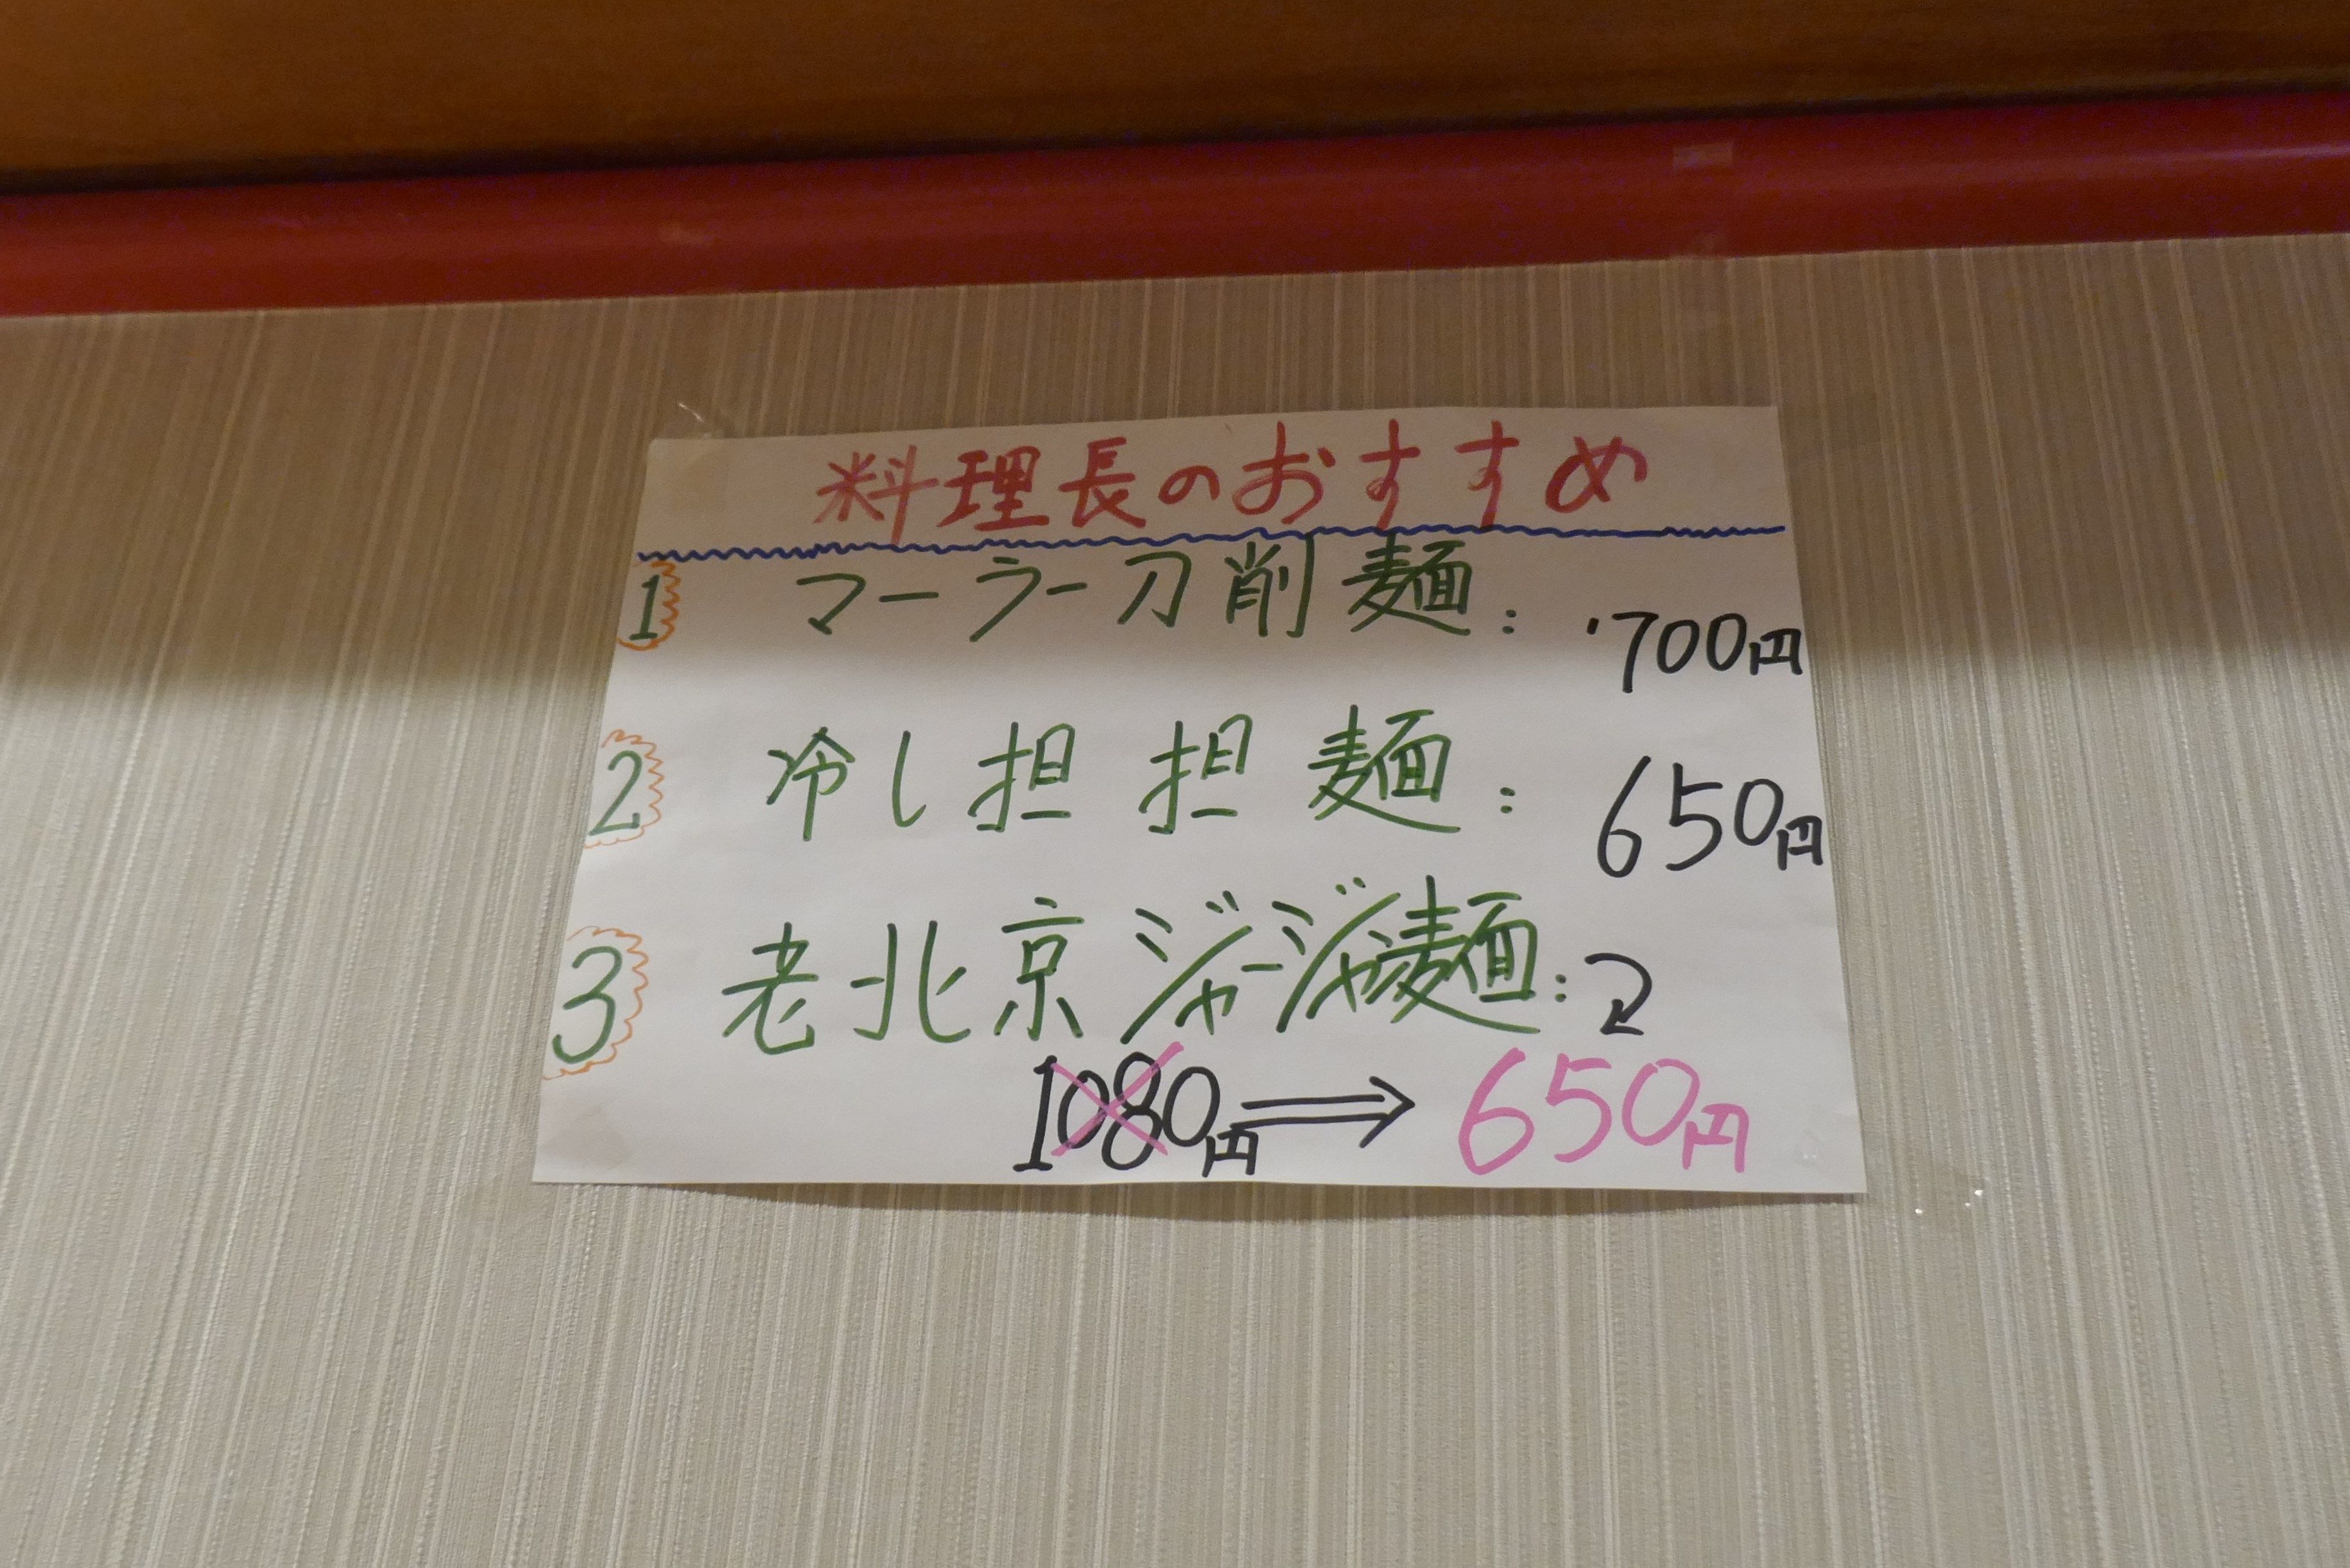 料理長のおすすめ
1 マーラー刀削麺: 700円
2 冷し担担麺: 650円
3 老北京ジャージャ麺:
1080円 ⇒ 650円